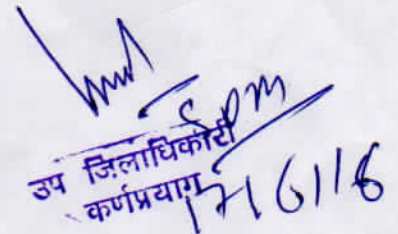 SDM
उप जिलाधिकारी
कर्णप्रयाग
17/6/16